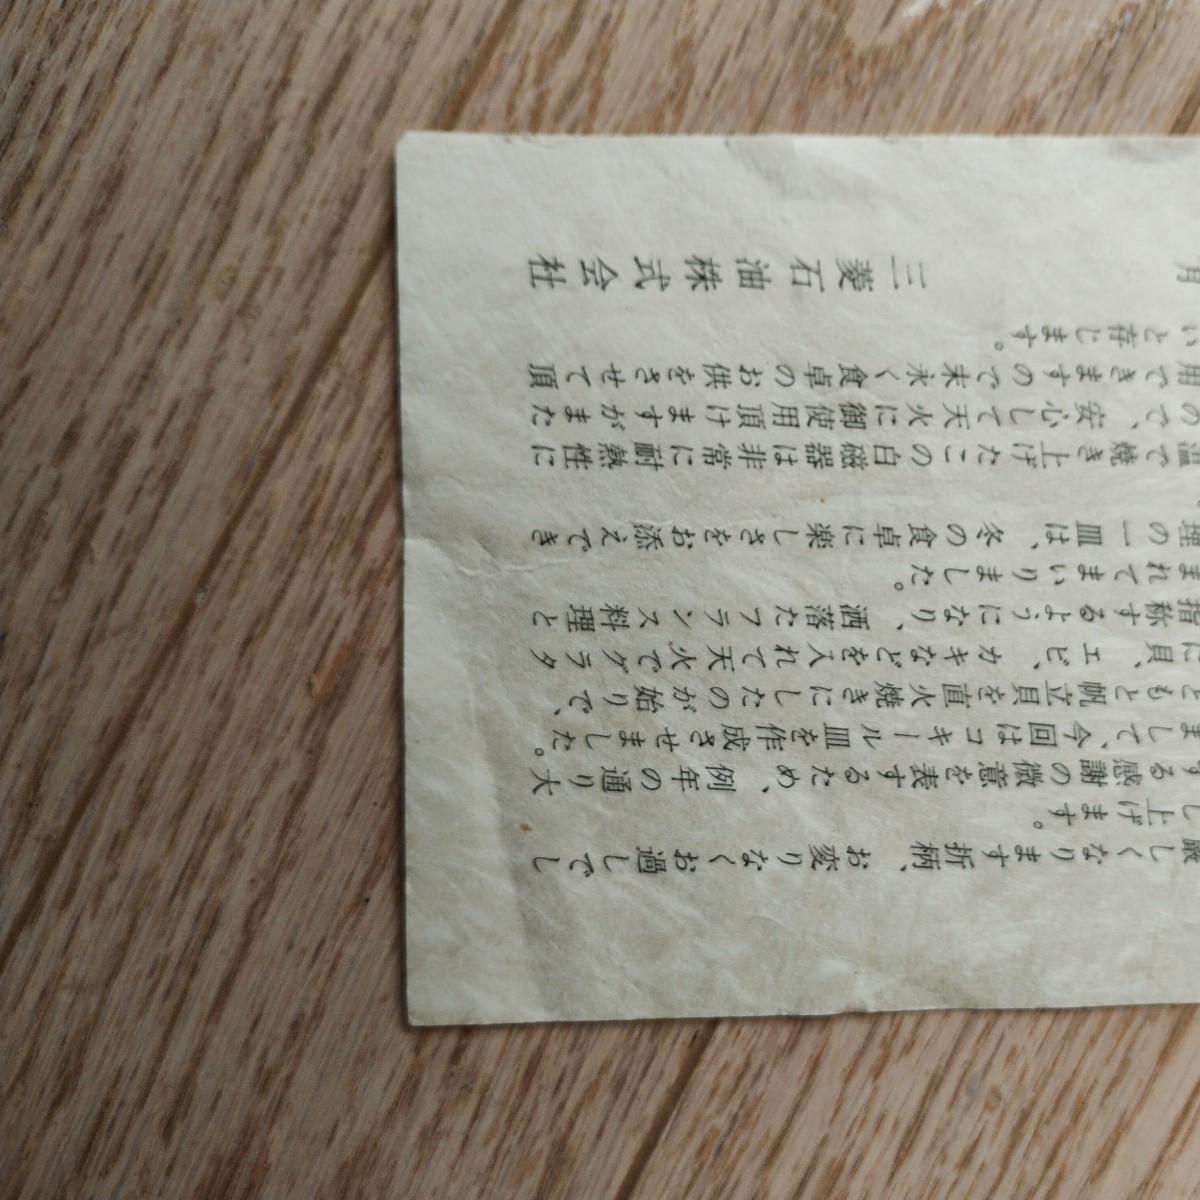 厳しくなります折柄、お変りなくお過しでし
し上げます。
する感謝の微意を表するため、例年の通り大
まして、今回はコキール皿を作成させました。
ともと帆立貝を直火焼きにしたのが始りで、
に貝、エビ、カキなどを入れて天火でグラタ
指称するようになり、洒落たフランス料理と
まれてまいりました。
理の一皿は、冬の食卓に楽しさをお添えでき
温で焼き上げたこの白磁器は非常に耐熱性に
ので、安心して天火に御使用頂けますがまた
用できますので末永く食卓のお供をさせて頂
いと存じます。
月 三菱石油株式会社